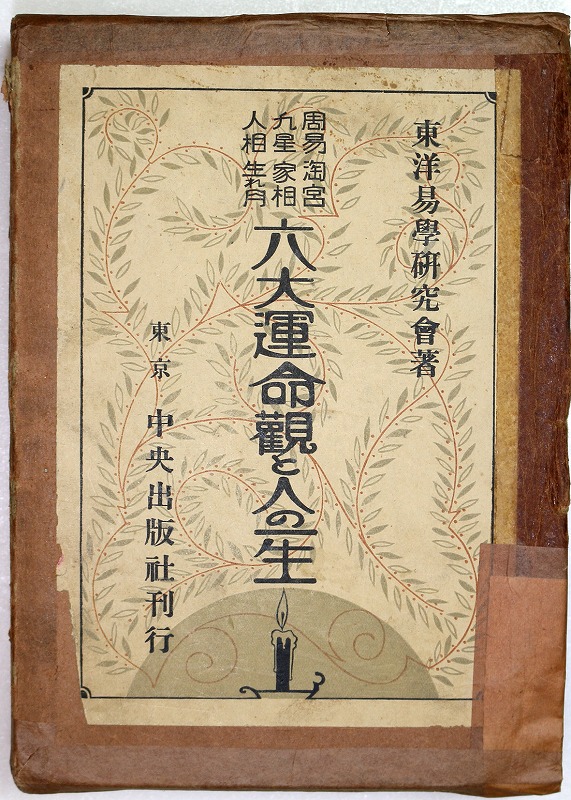 東洋易學硏究會著
周易 淘宮
九星 家相
人相 生れ月
六大運命觀と人の一生
東京 中央出版社刊行